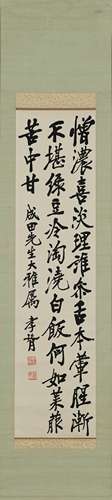 憎濃喜淡理誰參舌本葷腥漸
不堪綠豆冷淘澆白飯何如菜菔
苦中甘 成田先生大雅屬 孝胥